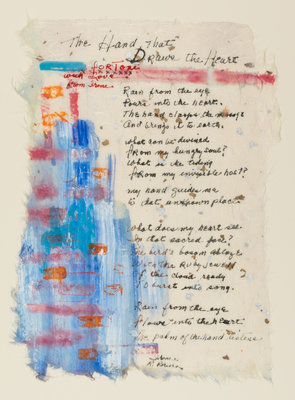 The Hand That
Draws the Heart
for Toni
with Love
from Irene
Rain from the eye
Pours into the heart.
The hand clasps the
And brings it to earth.
what can be divined
from my hungry soul?
What is the tiding
from my invisible host?
my hand guides me
to that unknown place.
What does my heart see
in that sacred
The bird's bosom ablaze
the Ruby jewel
of the cloud ready
To burst into song.
Rain from the eye
Flows into the heart
The palm of the hand